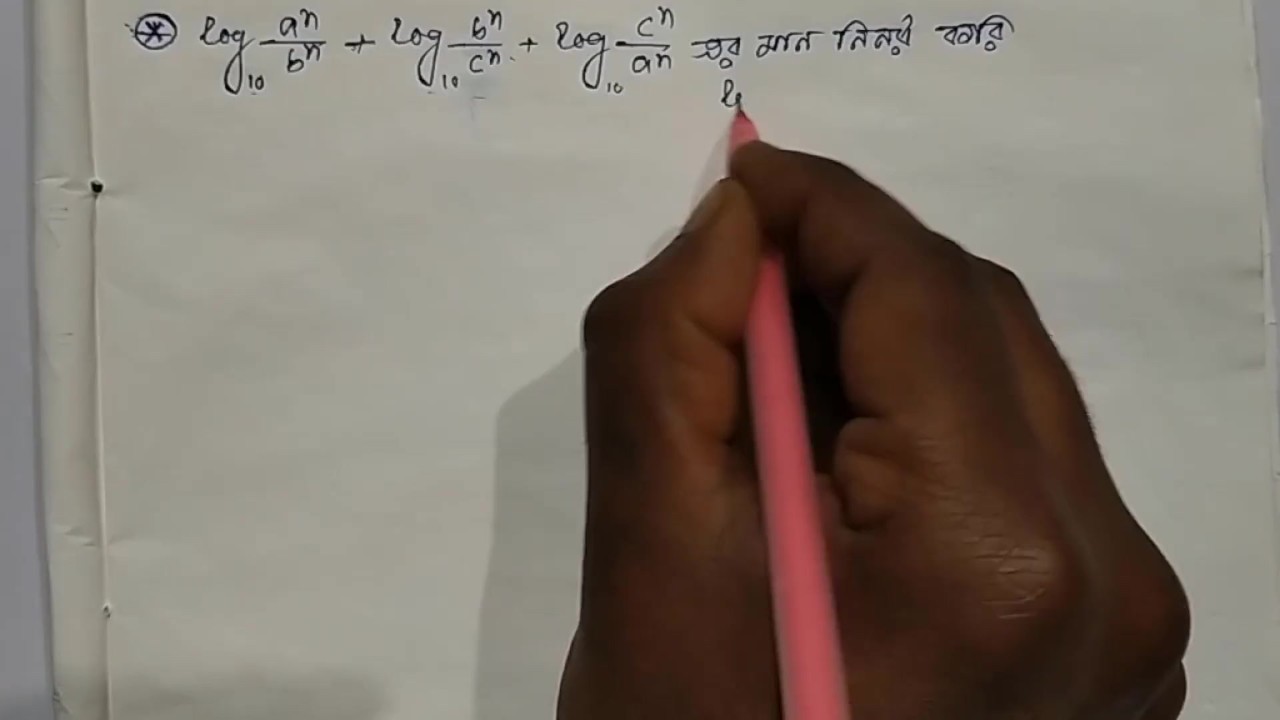 ⊛ log₁₀ aⁿ/bⁿ + log₁₀ bⁿ/cⁿ + log₁₀ cⁿ/aⁿ এর মান নির্নয় করি